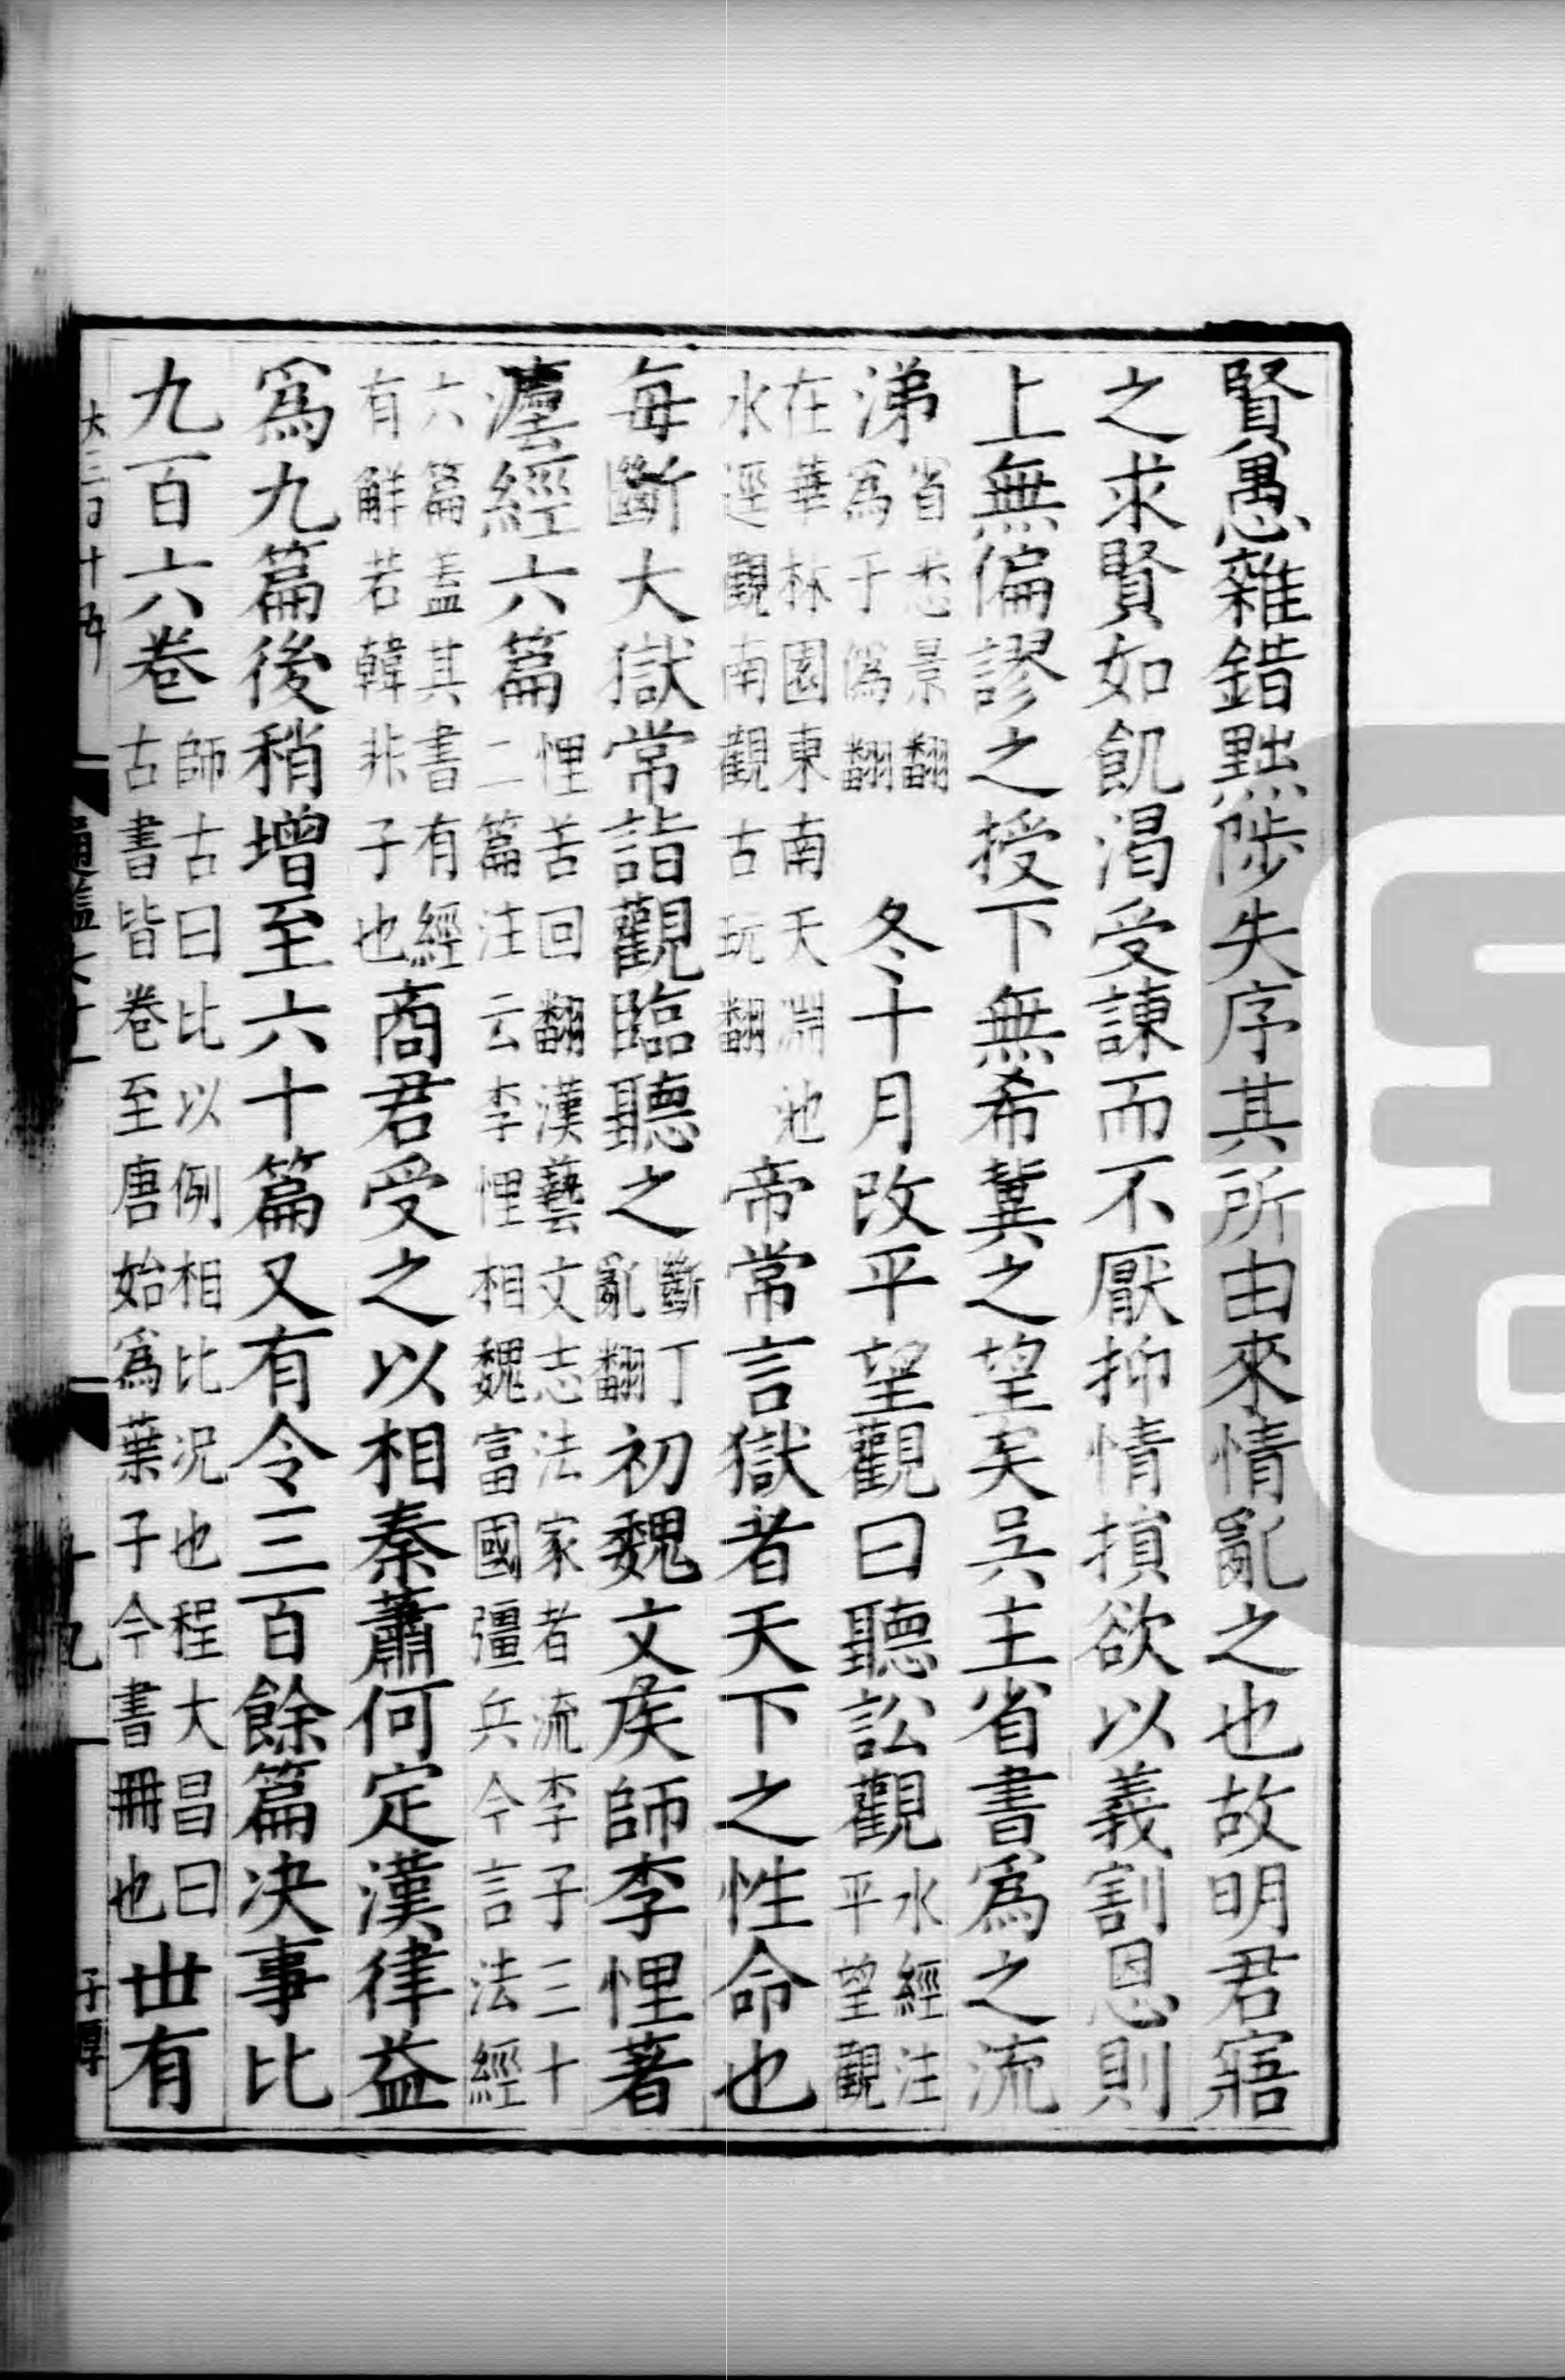 賢愚雜錯黜陟失序其所由來情亂之也故明君寤
之求賢如飢渴受諫而不厭抑情損欲以義割恩則
上無偏謬之授下無希冀之望矣吳主省書爲之流
涕省悉景翻爲于僞翻冬十月改平望觀曰聽訟觀水經注平望觀
在華林園東南天淵池水逕觀南觀古玩翻帝常言獄者天下之性命也
每斷大獄常詣觀臨聽之斷丁亂翻初魏文侯師李悝著
灋經六篇悝苦回翻漢藝文志法家者流李子三十二篇注云李悝相魏富國彊兵今言法經
六篇蓋其書有經有解若韓非子也商君受之以相秦蕭何定漢律益
爲九篇後稍增至六十篇又有令三百餘篇決事比
九百六卷師古曰比以例相比况也程大昌曰古書皆卷至唐始爲葉子今書冊也世有
大三百十五
十九